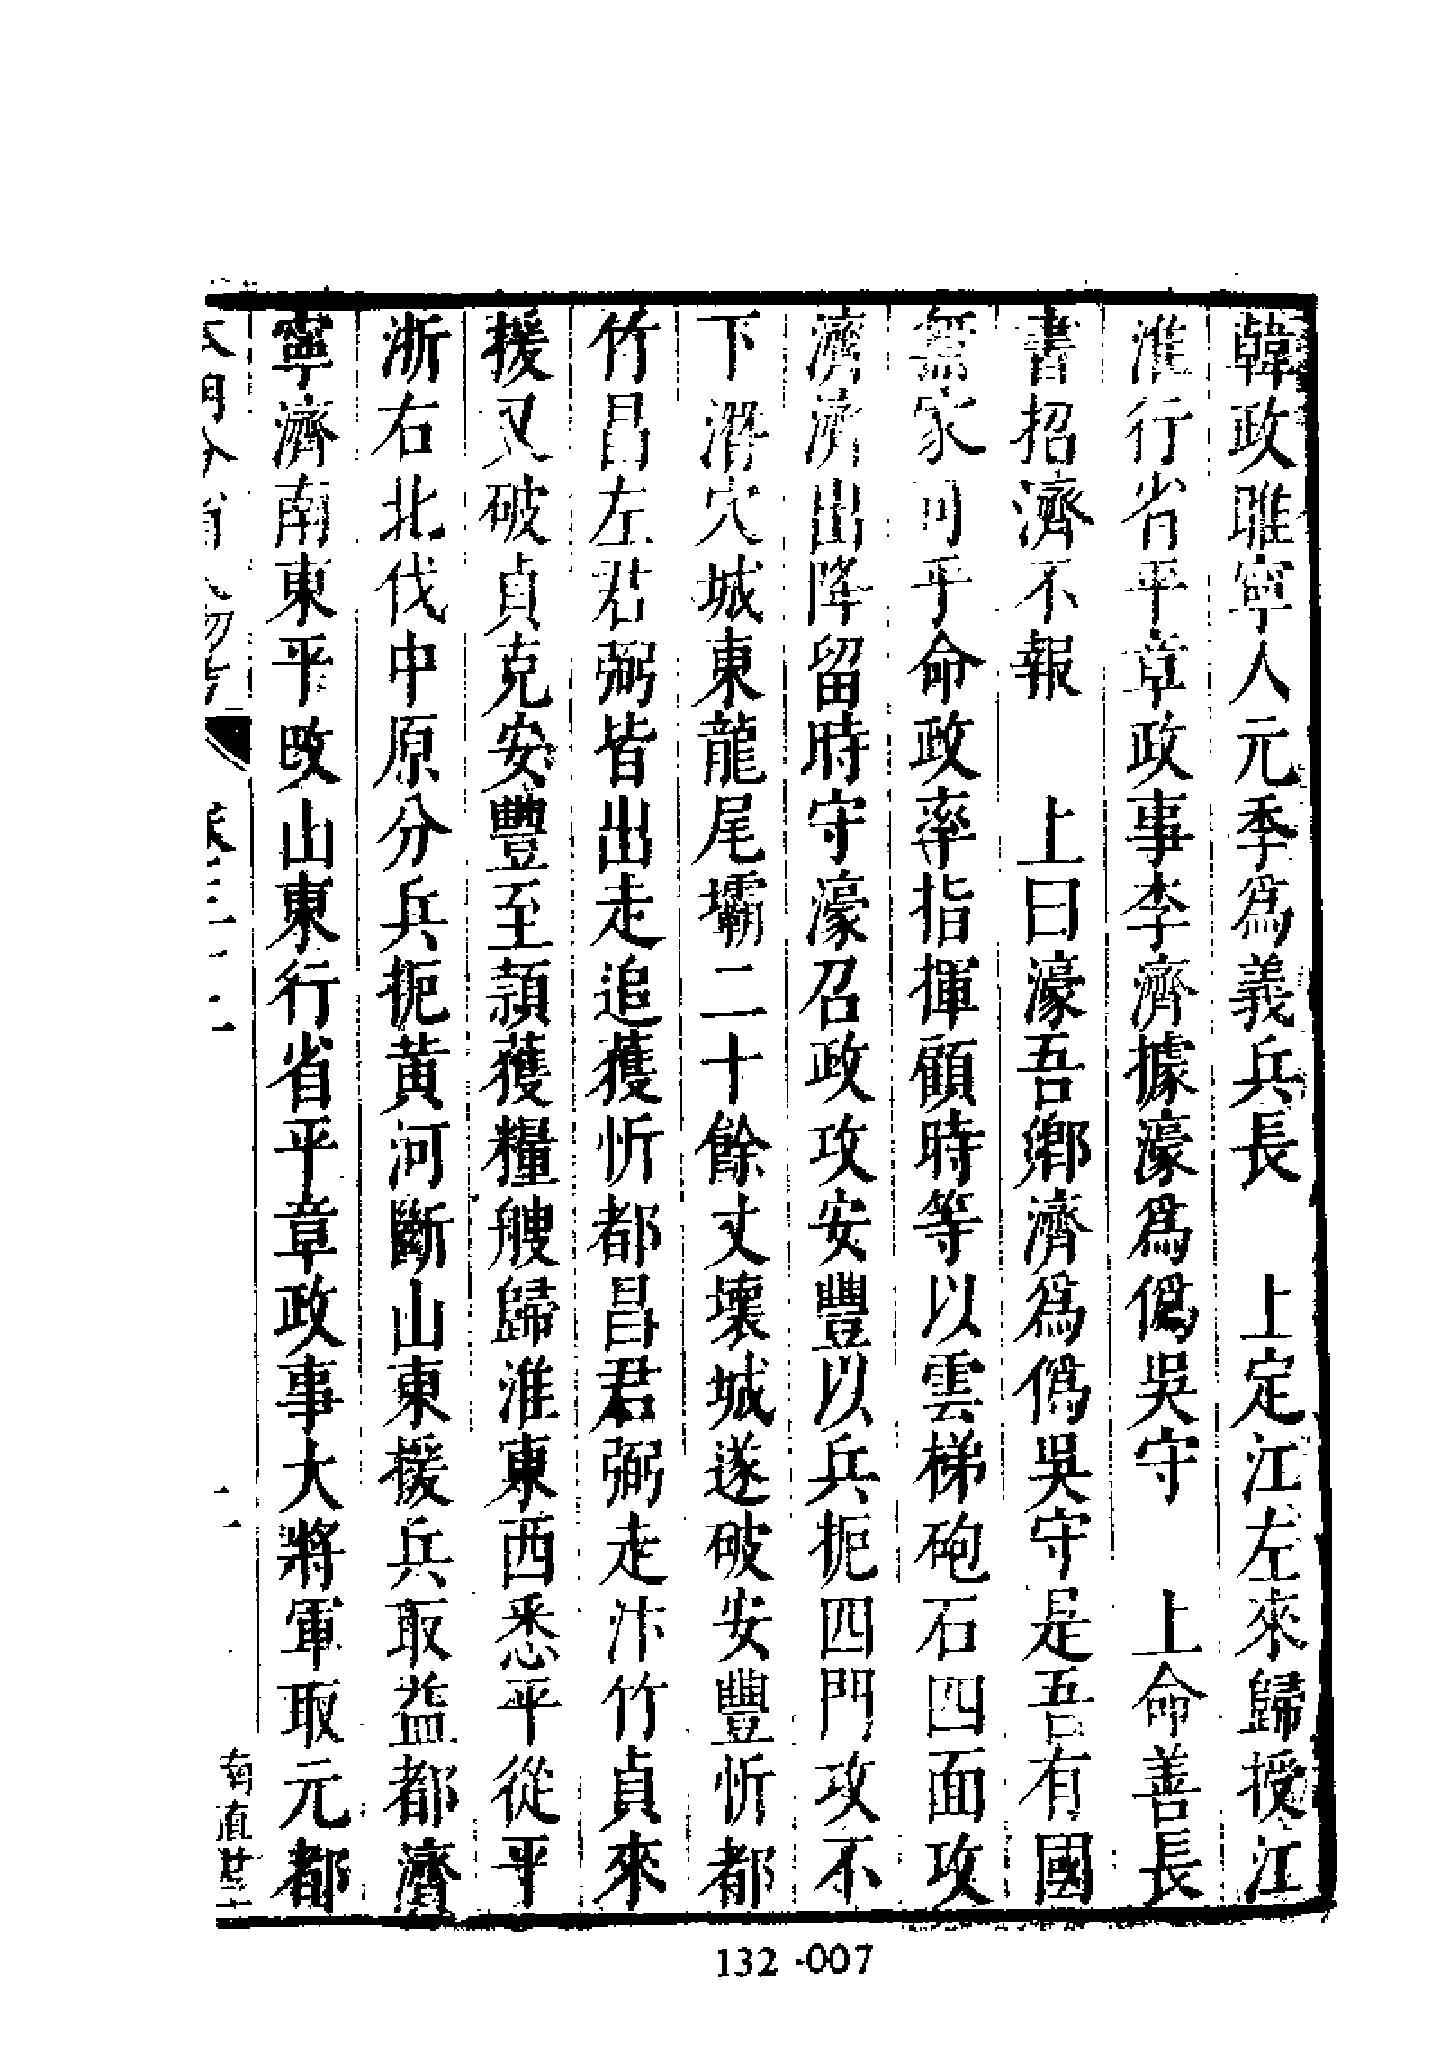 韓政睢寧人元季爲義兵長　上定江左來歸授江
淮行省平章政事李濟據濠爲僞吳守　上命善長
書招濟不報　上曰濠吾鄉濟爲僞吳守是吾有國
無家可乎命政率指揮顧時等以雲梯砲石四面攻
濟濟出降留時守濠召政攻安豐以兵扼四門攻不
下潛穴城東龍尾壩二十餘丈壞城遂破安豐忻都
竹昌左君弼皆出走追獲忻都昌君弼走汴竹貞來
援又破貞克安豐至潁獲糧艘歸淮東西悉平從平
浙右北伐中原分兵扼黃河斷山東援兵取益都濟
寧濟南東平改山東行省平章政事大將軍取元都
本朝分省人物考　卷三十一　二　南直廿一
132-007